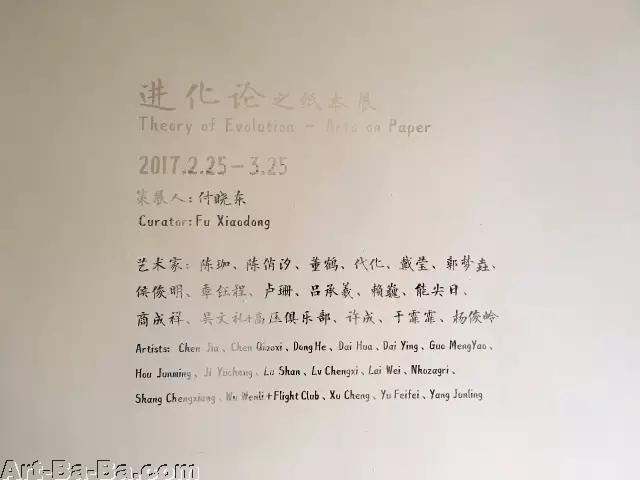 进化论之纸本展
Theory of Evolution - Arts on Paper
2017.2.25-3.25
策展人:付晓东
Curator:Fu Xiaodong
艺术家:陈珈、陈俏汐、董鹤、代化、戴莹、郭梦垚、
侯俊明、 卢珊、吕承羲、赖巍、能尖日、
商成祥、吴文礼+高 俱乐部、许成、于霏霏、杨俊岭
Artists: Chen Jia、Chen Qiaoxi、Dong He、Dai Hua、Dai Ying、Guo MengYao、
Hou Junming、Ji Yucheng、Lu Shan、Lv Chengxi、Lai Wei、Nhozagri、
Shang Chengxiang、Wu Wenli+Flight Club、Xu Cheng、Yu Feifei、Yang Junling
Art-Ba-Ba.com